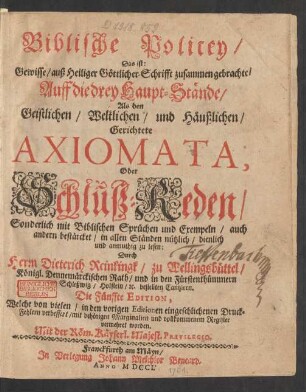 Biblische Policey/
Das ist:
Gewisse/ auß Heiliger Göttlicher Schrifft zusammen gebrachte/
Auff die drey Haupt-Stände/
Als den
Geistlichen/ Weltlichen/ und Häußlichen/
Gerichtete
AXIOMATA,
Oder
Schluß-Reden/
Sonderlich mit Biblischen Sprüchen und Exempeln/ auch
andern bestärcket/ in allen Ständen nützlich/ dienlich
und anmuthig zu lesen:
Durch
Herrn Dieterich Reinkingk/ zu Wellingsbüttel/
Königl. Dennemärckischen Rath/ und in den Fürstenthümmern
Schleßwig/ Holstein/ &c. bestellten Cantzlern.
Die Fünffte EDITION,
Welche von vielen/ in den vorigen Editionen eingeschlichenen Druck-
Fehlern verbessert/ mit behörigen Marginalien und vollkommenern Register
vermehret worden.
Mit der Röm. Käyserl. Majest. PRIVILEGIO.
Franckfurth am Mäyn/
In Verlegung Johann Melchior Bencard.
ANNO MDCCI.